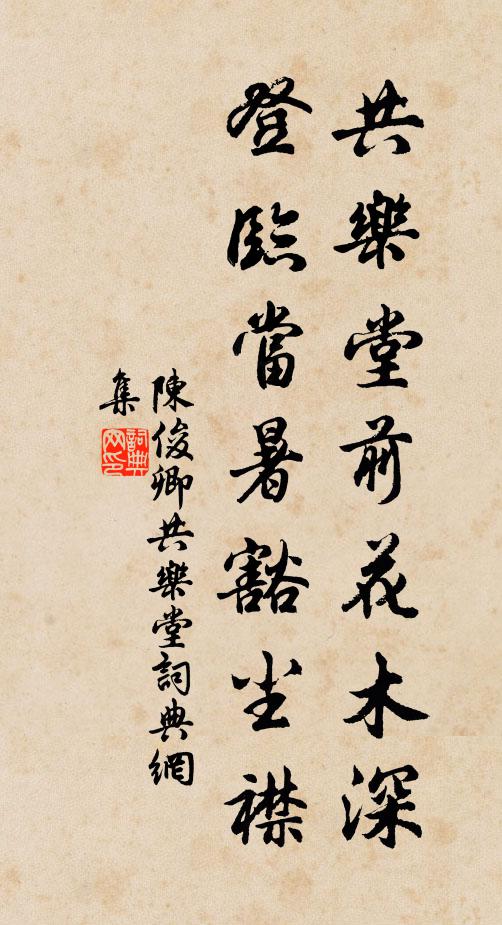 共樂堂前花木深
登臨當暑豁尘襟
陳俊卿共樂堂詞典網
集
詞典網印